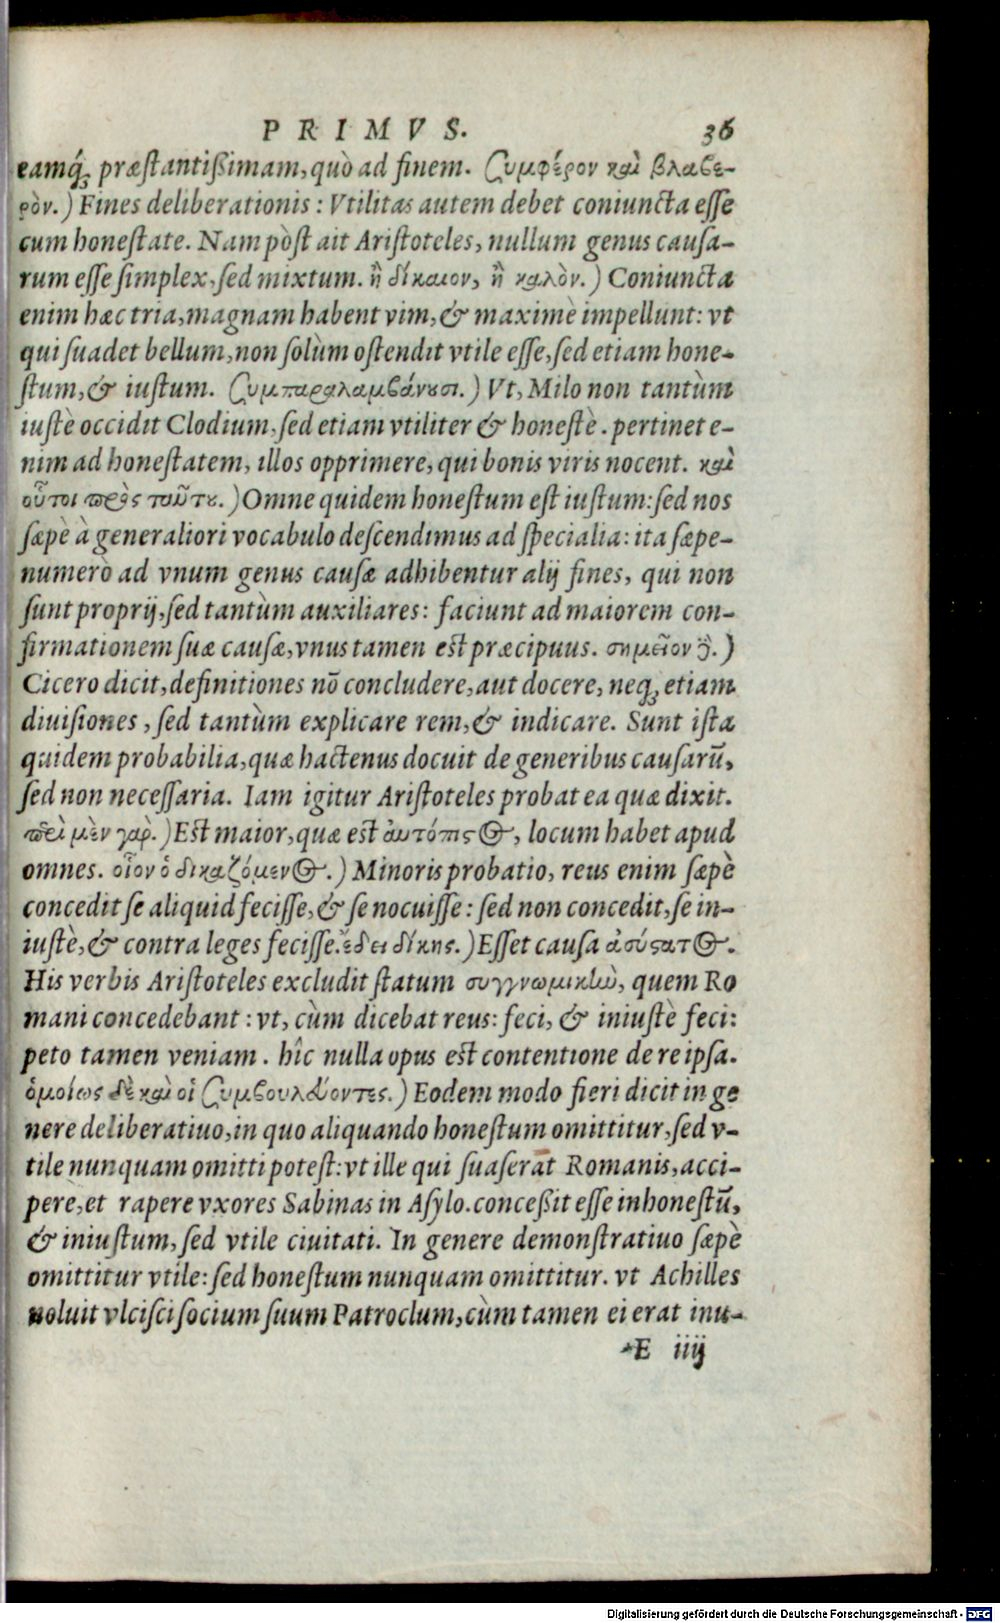 PRIMVS. 36
eamq́ꝫ præstantißimam, quò ad finem. Συμφέρον καὶ βλαβε-
ρὸν.) Fines deliberationis: Vtilitas autem debet coniuncta esse
cum honestate. Nam pòst ait Aristoteles, nullum genus causa-
rum esse simplex, sed mixtum. ἢ δίκαιον, ἢ καλὸν.) Coniuncta
enim hæc tria, magnam habent vim, & maximè impellunt: vt
qui suadet bellum, non solùm ostendit vtile esse, sed etiam hone-
stum, & iustum. Συμπαραλαμβάνουσι.) Vt, Milo non tantùm
iustè occidit Clodium, sed etiam vtiliter & honestè. pertinet e-
nim ad honestatem, illos opprimere, qui bonis viris nocent. καὶ
οὗτοι πρὸς τοῦτο.) Omne quidem honestum est iustum: sed nos
sæpè à generaliori vocabulo descendimus ad specialia: ita sæpe-
numerò ad vnum genus causæ adhibentur alij fines, qui non
sunt proprij, sed tantùm auxiliares: faciunt ad maiorem con-
firmationem suæ causæ, vnus tamen est præcipuus. σημεῖον δ̀.)
Cicero dicit, definitiones nō concludere, aut docere, neqꝫ etiam
diuisiones, sed tantùm explicare rem, & indicare. Sunt ista
quidem probabilia, quæ hactenus docuit de generibus causarū,
sed non necessaria. Iam igitur Aristoteles probat ea quæ dixit.
περὶ μὲν γαρ̀.) Est maior, quæ est ἀυτόπιστος, locum habet apud
omnes. οἷον ὁ δικαζόμενος.) Minoris probatio, reus enim sæpè
concedit se aliquid fecisse, & se nocuisse: sed non concedit, se in-
iustè, & contra leges fecisse. ἔδει δίκης.) Esset causa ἀσύστατος.
His verbis Aristoteles excludit statum συγγνωμικὴν, quem Ro
mani concedebant: vt, cùm dicebat reus: feci, & iniustè feci:
peto tamen veniam. hîc nulla opus est contentione de re ipsa.
ὁμοίως δὲ καὶ οἱ Συμβουλεύοντες.) Eodem modo fieri dicit in ge
nere deliberatiuo, in quo aliquando honestum omittitur, sed v-
tile nunquam omitti potest: vt ille qui suaserat Romanis, acci-
perè, et rapere vxores Sabinas in Asylo. conceßit esse inhonestū,
& iniustum, sed vtile ciuitati. In genere demonstratiuo sæpè
omittitur vtile: sed honestum nunquam omittitur. vt Achilles
uoluit vlcisci socium suum Patroclum, cùm tamen ei erat inu-
E iiij
Digitalisierung gefördert durch die Deutsche Forschungsgemeinschaft - DFG